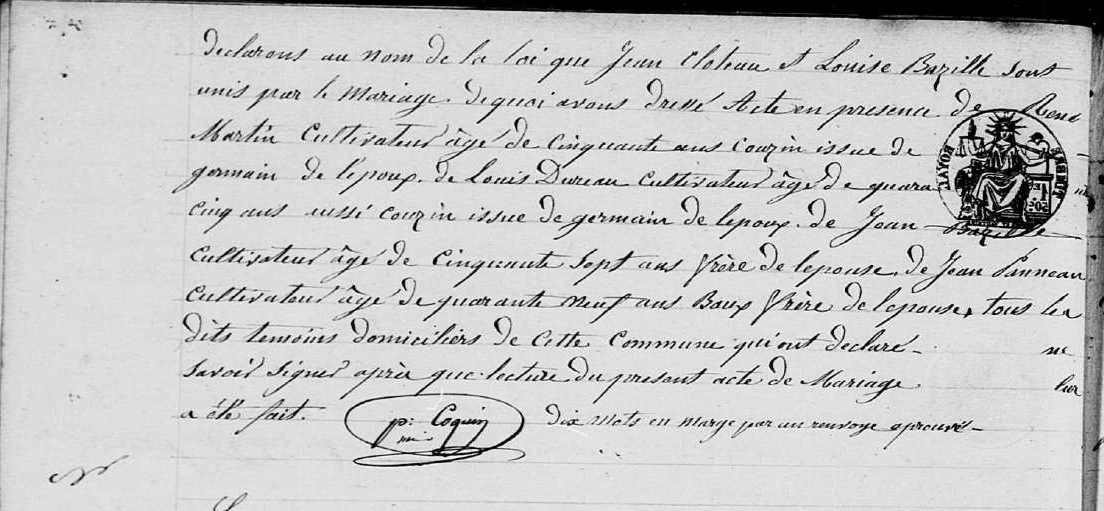 declarons au nom de la loi que Jean Cloteau et Louise Bazille sont
unis par le Mariage. de quoi avons dressé Acte en presence de Rene
Martin Cultivateur âgé de Cinquante ans Couzin issue de
germain de l'epoux. de Louis Dureau Cultivateur âgé de quara
cinq ans aussi couzin issue de germain de lepoux. de Jean Bazille
Cultivateur âgé de Cinquante Sept ans frère de lepouse, de Jean Panneau
Cultivateur âgé de quarante neuf ans Baux frère de lepouse, tous les
dits temoins domiciliés de Cette Commune qui ont declaré ne
Savoir Signer après que lecture du present acte de Mariage leur
a été fait. p: Coquin dix mots en marge par un renvoye aprouvé
ROYAL
TIMBRE